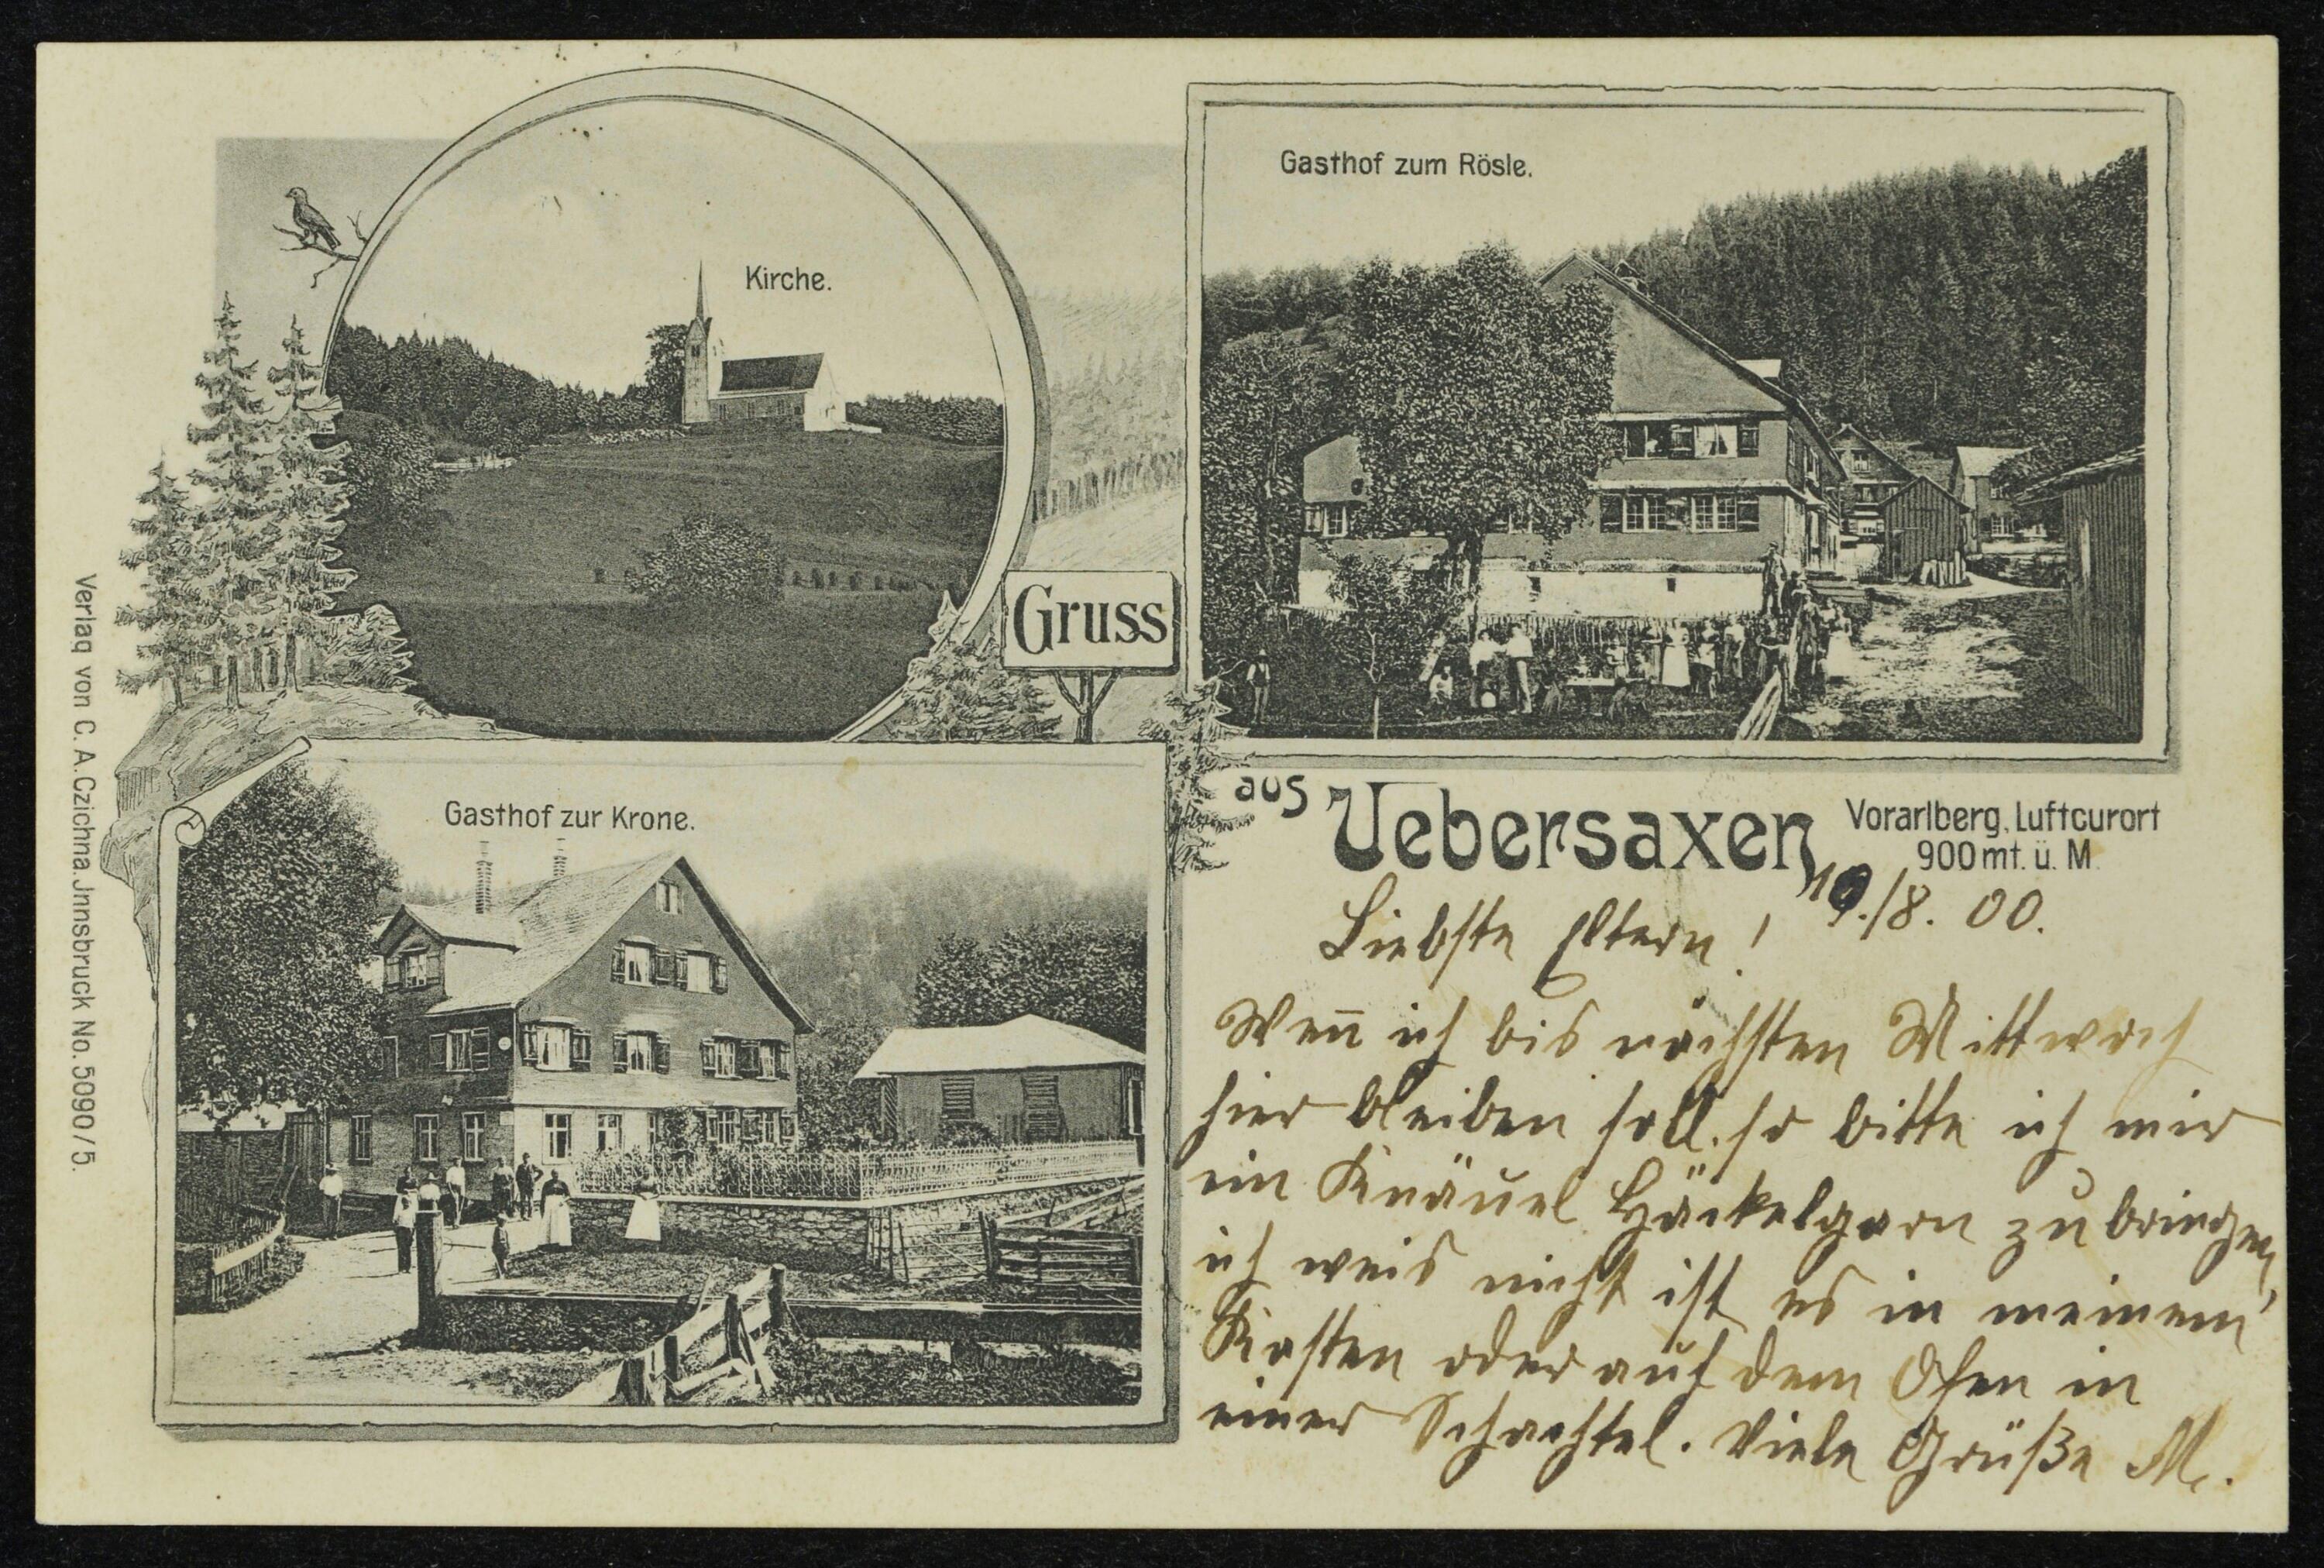 Kirche.
Gasthof zum Rösle.
Gruss
Gasthof zur Krone.
aus Uebersaxen
Vorarlberg. Luftcurort
900 mt. ü. M.
Verlag von C. A. Czichna Jnnsbruck No. 5090/5.
/8. 00.
Liebste Eltern!
Weñ ich bis nächsten Mittwoch
hier bleiben soll. so bitte ich mir
ein Knäuel Häckelgarn zu bringen,
ich weis nicht ist es in meinem
Kasten oder auf dem Ofen in
einer Schachtel. Viele Grüße M.